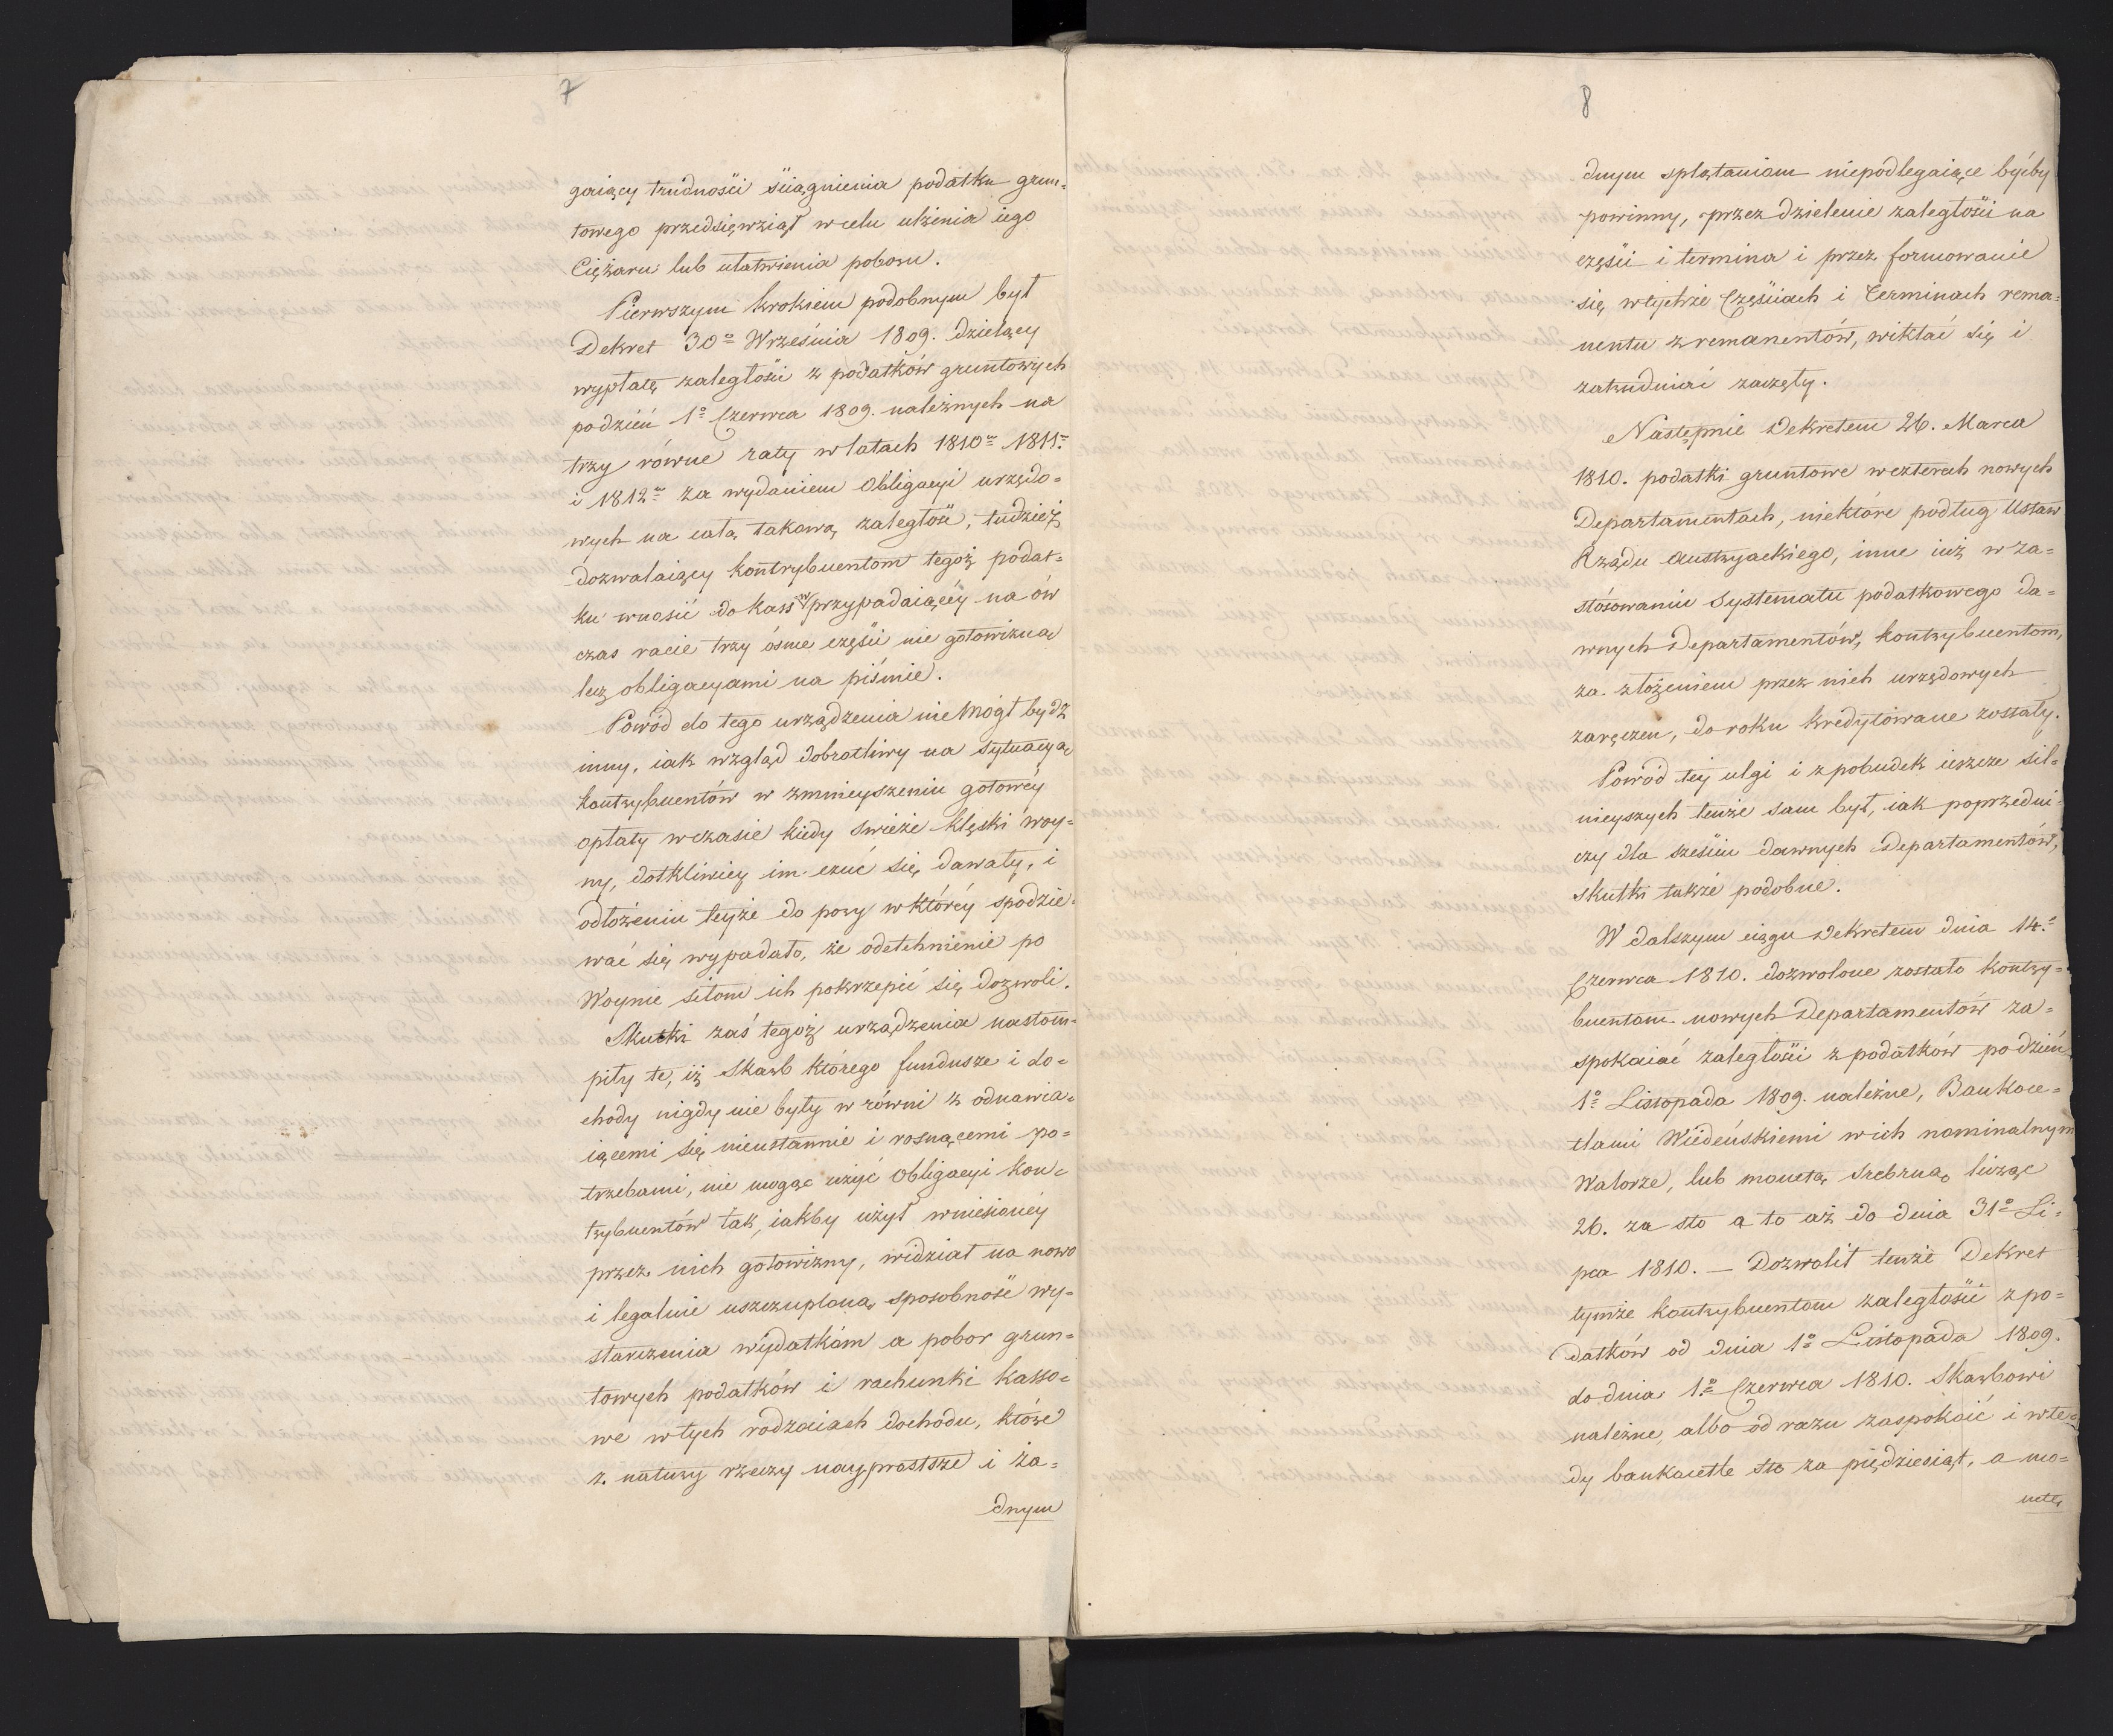 7
gaiący trudności ściągnienia podatku grun=
towego przedsięwziął w celu ulżenia iego
Ciężaru lub ułatwienia poboru.
Pierwszym krokiem podobnym był
Dekret 30º Września 1809. dzielący
wypłatę zaległości z podatków gruntowych
podzień 1º Czerwca 1809. należnych na
trzy równe raty w latach 1810m 1811m
i 1812m za wydaniem Obligacyi urzędo=
wych na całą takową zaległość, tudzież
dozwalaiący kontrybuentom tegoż podat=
ku wnosić do kass w przypadaiącéy na ów
czas racie trzy ósme części nie gotowizną
lecz obligacyami na piśmie.
Powód do tego urządzenia nie mógł bydź
inny, iak wzgląd dobrotliwy na sytuacyą
kontrybuentów w zmnieyszeniu gotowéy
opłaty w czasie kiedy świeże klęski woy=
ny, dotkliwiey im czuć się dawały, i
odłożeniu teyże do pory w któréy spodzie=
wać się wypadało, że odetchnienie po
Woynie siłom ich pokrzepić się dozwoli.
Skutki zaś tegoż urządzenia nastom=
piły te, iż Skarb którego fundusze i do=
chody nigdy nie były w równi z odnawia=
iącemi się nieustannie i rosnącemi po=
trzebami, nie mogąc użyć Obligacyi kon=
trybuentów tak, iakby użył wniesionéy
przez nich gotowizny, widział na nowo
i legalnie uszczuploną sposobność wy=
starczenia wydatkom a pobor grun=
towych podatków i rachunki kasso=
we w tych rodzaiach dochodu, które
z natury rzeczy nayprostsze i ża=
dnym
8
dnym splątaniom niepodlegaiące byćby
powinny, przez dzielenie zaległości na
części i termina i przez formowanie
się w tychże Częściach i Terminach rema=
nentu z remanentów, wikłać się i
zatrudniać zaczęły.
Następnie Dekretem 26. Marca
1810. podatki gruntowe w czterech nowych
Departamentach, niektóre podług Ustaw
Rządu Austryackiego, inne iuż w za=
stósowaniu Systematu podatkowego da=
wnych Departamentów, kontrybuentom,
za złożeniem przez nich urzędowych
zaręczeń, do roku kredytowane zostały.
Powód téy ulgi i z pobudek ieszcze sil=
nieyszych tenże sam był, iak poprzedni=
czy dla sześciu dawnych Departamentów,
skutki także podobne.
W dalszym ciągu Dekretem dnia 14º
Czerwca 1810. dozwolone zostało kontry=
buentom nowych Departamentów za=
spokaiać zaległości z podatków podzień
1º Listopada 1809. należne, Bankoce=
tlami Wiedeńskiemi w ich nominalnym
Walorze, lub monetą srebrną, licząc
26. za sto a to aż do dnia 31º Li=
pca 1810. — Dozwolił tenże Dekret
tymże kontrybuentom zaległości z po=
datków od dnia 1º Listopada 1809.
do dnia 1º Czerwca 1810. Skarbowi
należne, albo od razu zaspokoić i wte=
dy bankocetle sto za pięćdziesiąt, a mo=
netę